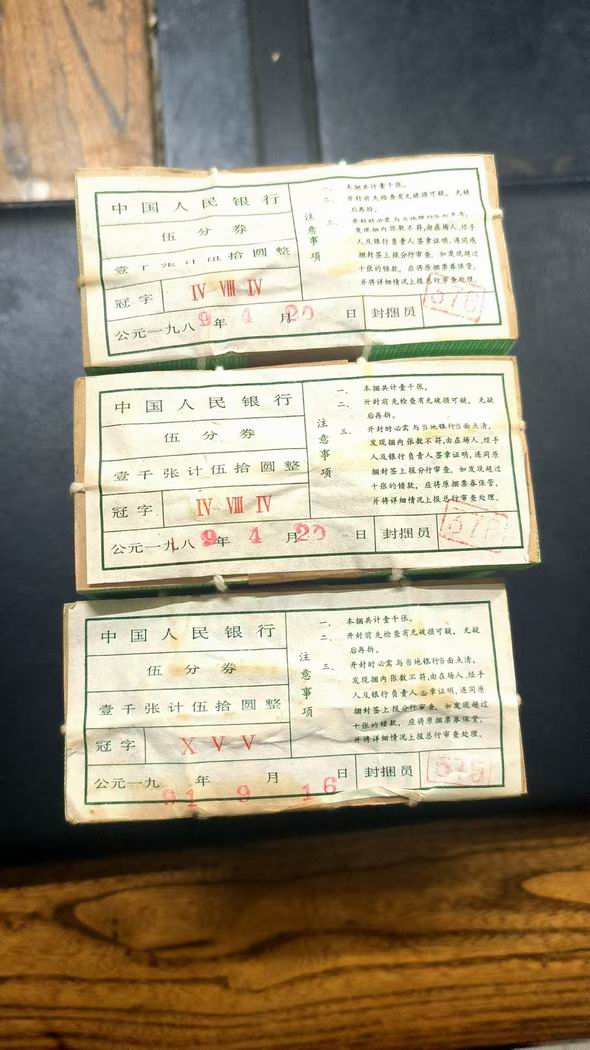 中国人民银行
伍分券
壹千张计伍拾圆整
冠字 Ⅳ Ⅷ Ⅳ
公元一九八9年4月20日 封捆员 376
注意事项
一、本捆共计壹千张。
二、开封前先检查有无破损可疑，无疑
后再拆。
三、开封时必需与当地银行当面点清，
发现捆内张数不符，由在场人、经手
人及银行负责人签章证明，连同原
捆封签上报分行审查。如发现超过
十张的错款，应将原捆票券保管，
并将详细情况上报总行审查处理。
中国人民银行
伍分券
壹千张计伍拾圆整
冠字 Ⅳ Ⅷ Ⅳ
公元一九八9年4月20日 封捆员
注意事项
一、本捆共计壹千张。
二、开封前先检查有无破损可疑，无疑
后再拆。
三、开封时必需与当地银行当面点清，
发现捆内张数不符，由在场人、经手
人及银行负责人签章证明，连同原
捆封签上报分行审查。如发现超过
十张的错款，应将原捆票券保管，
并将详细情况上报总行审查处理。
中国人民银行
伍分券
壹千张计伍拾圆整
冠字 X V V
公元一九 年 月 日 封捆员
91 9 16
注意事项
一、本捆共计壹千张。
二、开封前先检查有无破损可疑，无疑
后再拆。
三、开封时必需与当地银行当面点清，
发现捆内张数不符，由在场人、经手
人及银行负责人签章证明，连同原
捆封签上报分行审查。如发现超过
十张的错款，应将原捆票券保管，
并将详细情况上报总行审查处理。